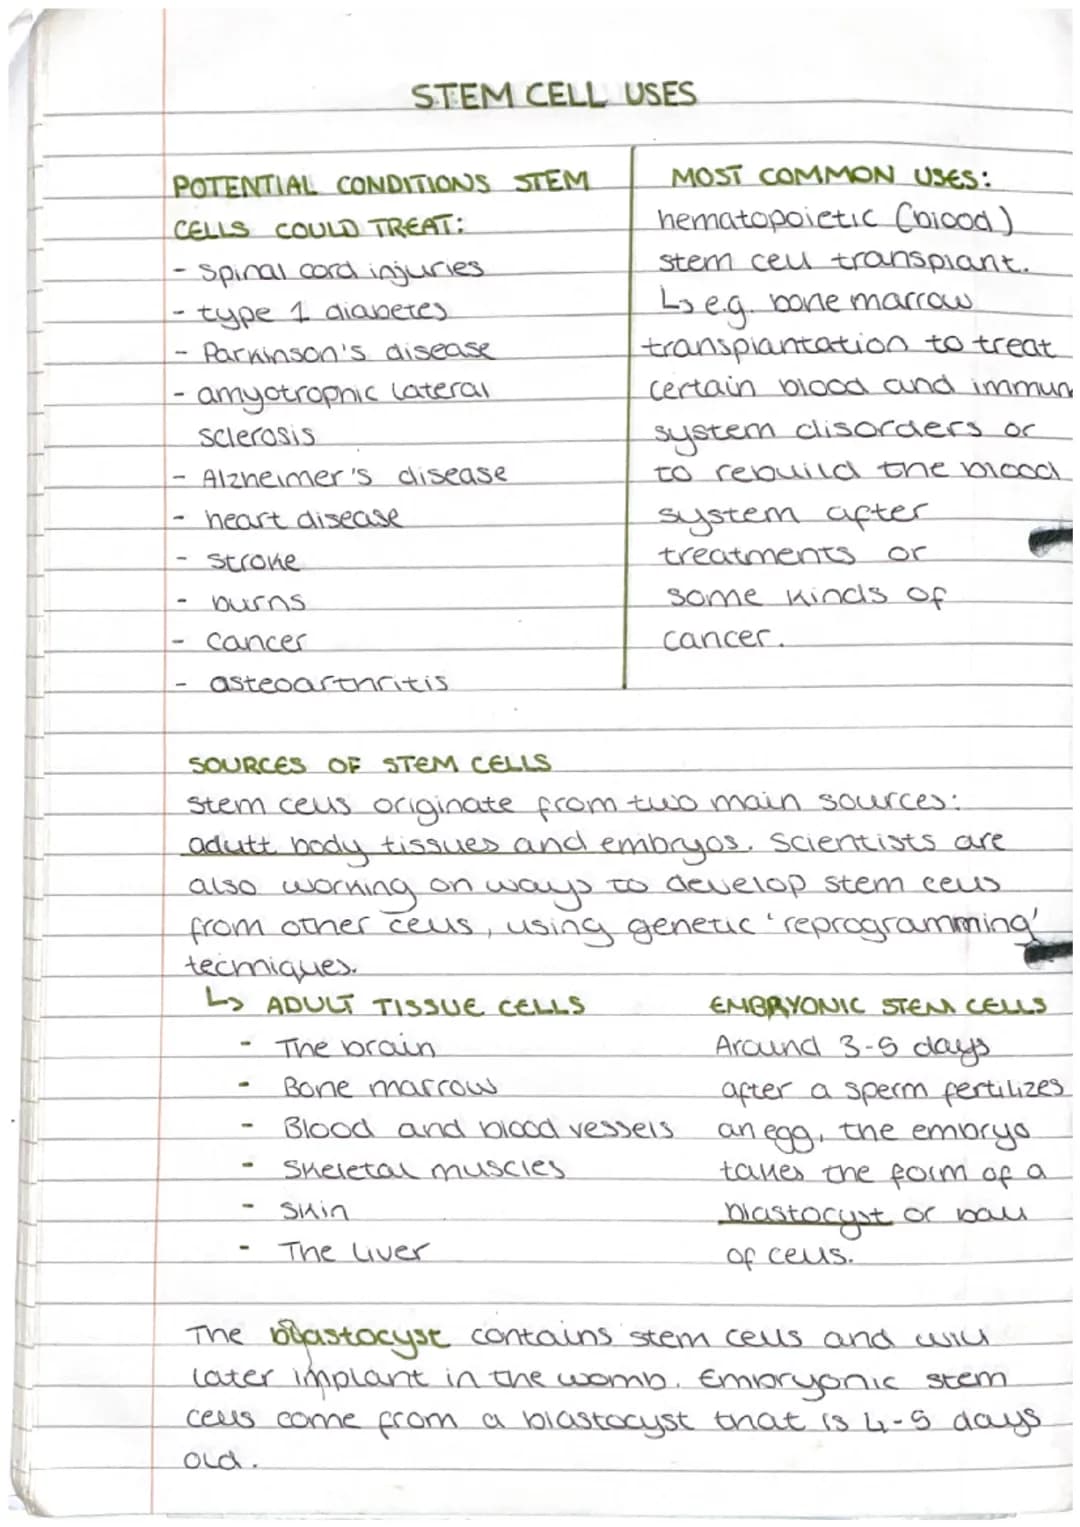 STEM CELL USES
POTENTIAL CONDITIONS STEM
CELLS COULD TREAT:
- spinal cord injuries
- type 1 diabetes
- Parkinson's disease
- amyotrophic lateral
sclerosis
- Alzheimer's disease
- heart disease
- stroke
- burns
- cancer
- asteoarthritis
MOST COMMON USES:
hematopoietic (blood)
stem cell transplant.
↳ e.g. bone marrow
transplantation to treat
certain blood and immun
system disorders or
to rebuild the blood
system after
treatments or
some kinds of
cancer.
SOURCES OF STEM CELLS
Stem cells originate from two main sources:
adutt body tissues and embryos. Scientists are
also working on ways to develop stem cells
from other cells, using genetic 'reprogramming'
techniques.
↳ ADULT TISSUE CELLS
- The brain
- Bone marrow
- Blood and blood vessels
- Skeletal muscles
- Skin
- The liver
EMBRYONIC STEM CELLS
Around 3-5 days
after a sperm fertilizes
an egg, the embryo
takes the form of a
blastocyst or ball
of cells.
The blastocyst contains stem cells and will
later implant in the womb. Embryonic stem
cells come from a blastocyst that is 4-5 days
old.